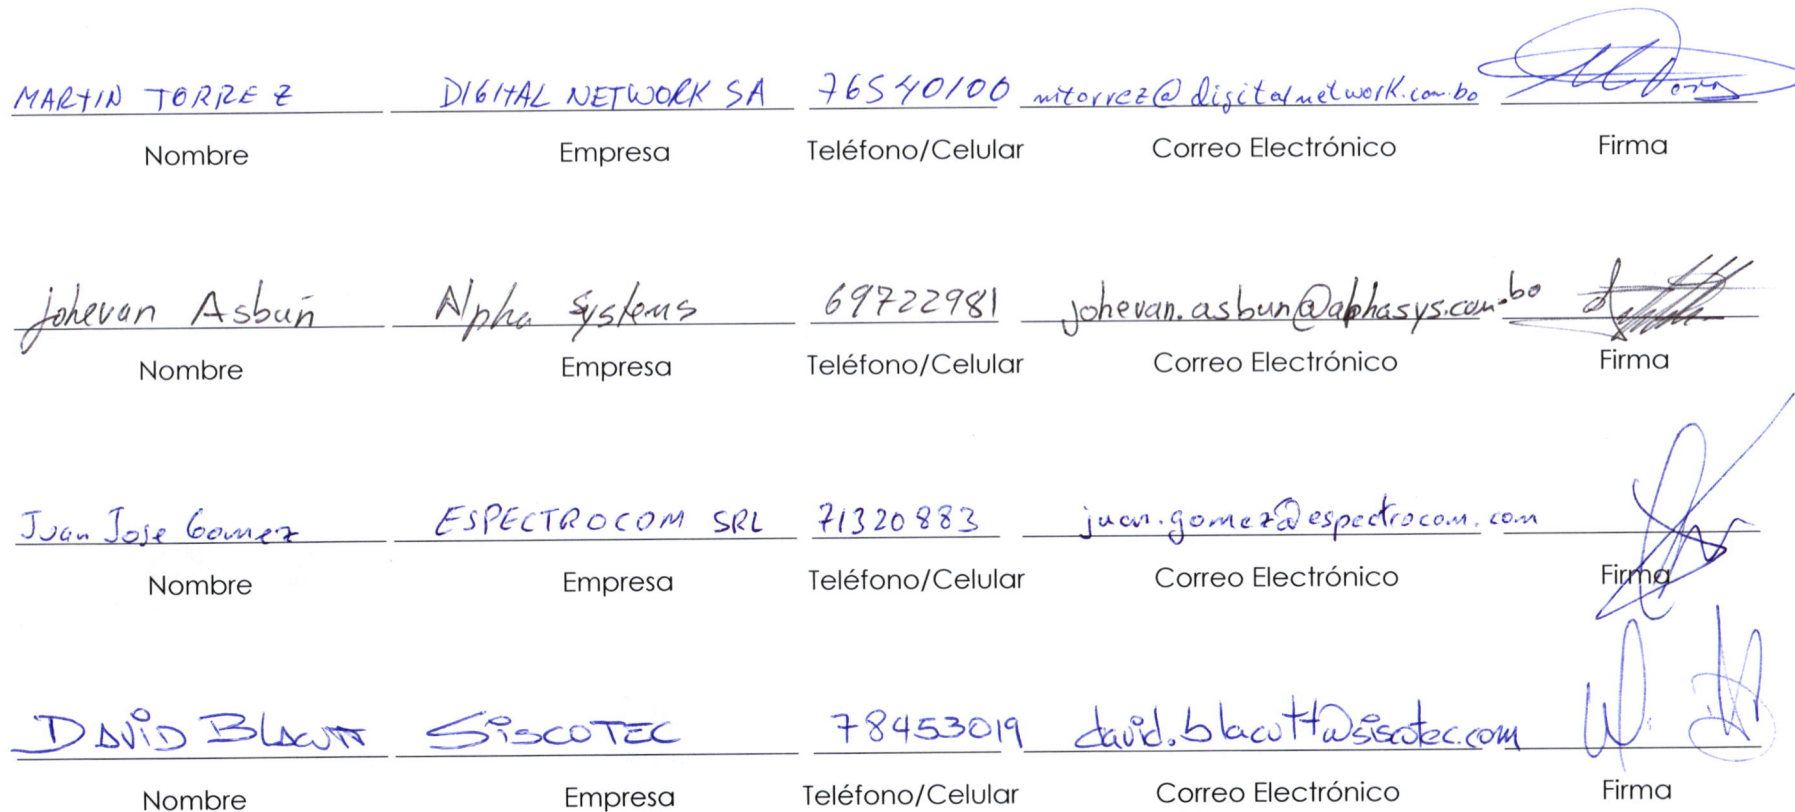 MARTIN TORREZ DIGITAL NETWORK SA 76540100 mtorrez@digitalnetwork.com.bo
Nombre Empresa Teléfono/Celular Correo Electrónico Firma
johevan Asbún Alpha Systems 69722981 johevan.asbun@alphasys.com.bo
Nombre Empresa Teléfono/Celular Correo Electrónico Firma
Juan Jose Gomez ESPECTROCOM SRL 71320883 juan.gomez@espectrocom.com
Nombre Empresa Teléfono/Celular Correo Electrónico Firma
DAVID BLACUTT SISCOTEC 78453019 david.blacutt@siscotec.com
Nombre Empresa Teléfono/Celular Correo Electrónico Firma